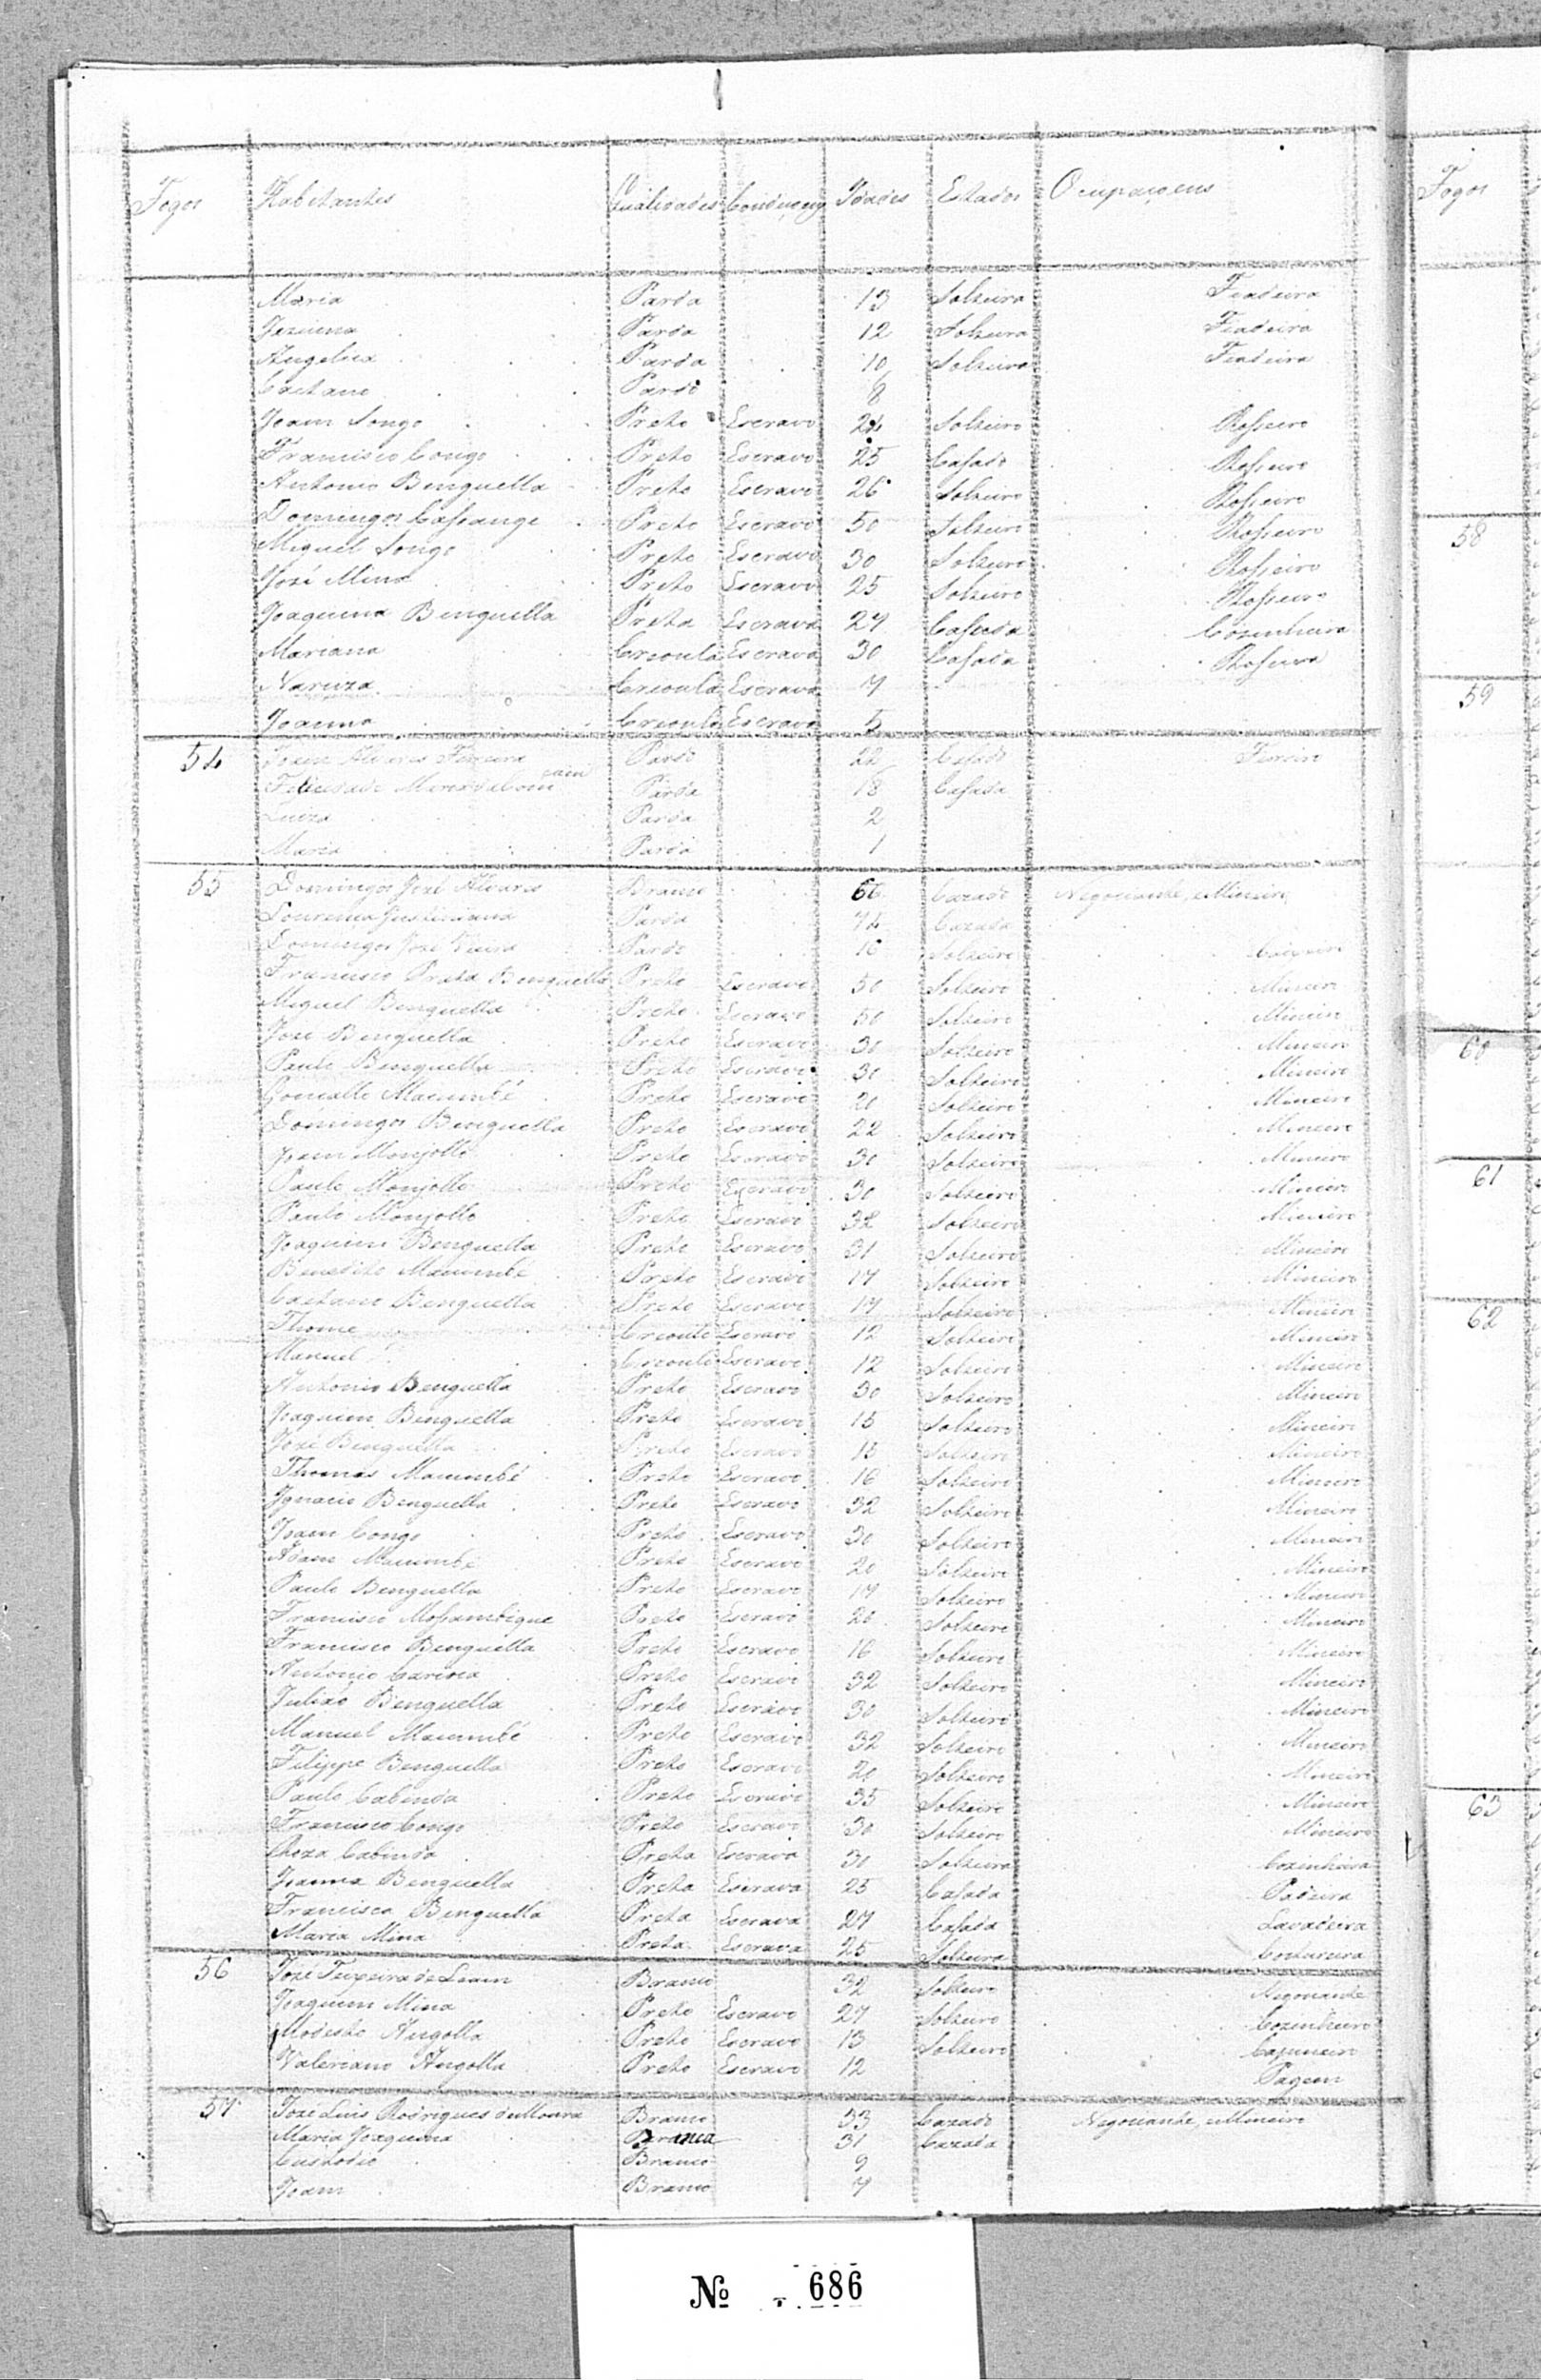 Fogos Habitantes Qualidades Conduçoens Idades Estados Ocupaçoens Fogos
Maria Parda 13 Solteira Fiadeira
Jezuina Parda 12 Solteira Fiadeira
Angelica Parda 10 Solteira Fiadeira
Caetano Pardo 8
Joam Songo Preto Escravo 24 Solteiro Rosseiro
Francisco Congo Preto Escravo 25 Casado Rosseiro
Antonio Benguella Preto Escravo 26 Solteiro Rosseiro
Domingos Cassange Preto Escravo 50 Solteiro Rosseiro
Miguel Songo Preto Escravo 30 Solteiro Rosseiro
José Mina Preto Escravo 25 Solteiro Rosseiro
Joaquina Benguella Preta Escrava 27 Casada Cozinheira
Mariana Creoula Escrava 30 Casada Rosseira
Nariza Creoula Escrava 7
Joanna Creoula Escrava 5
54 Joam Alvares Ferreira Pardo 22 Casado Ferreiro
Felicidade Maria Parda 18 Casada
Luiza Parda 2
Maria Parda 1
55 Domingos José Alvares Branco 66 Cazado Negociante, e Mineiro
Lourença Justiniana Parda 74 Cazada
Domingos José Vieira Pardo 16 Solteiro Caixeiro
Francisco Prata Benguella Preto Escravo 50 Solteiro Mineiro
Miguel Benguella Preto Escravo 50 Solteiro Mineiro
José Benguella Preto Escravo 30 Solteiro Mineiro
Paulo Benguella Preto Escravo 30 Solteiro Mineiro
Goncallo Macumbé Preto Escravo 20 Solteiro Mineiro
Domingos Benguella Preto Escravo 22 Solteiro Mineiro
Joam Monjollo Preto Escravo 30 Solteiro Mineiro
Paulo Monjollo Preto Escravo 30 Solteiro Mineiro
Paulo Monjollo Preto Escravo 32 Solteiro Mineiro
Joaquim Benguella Preto Escravo 31 Solteiro Mineiro
Benedito Macumbé Preto Escravo 17 Solteiro Mineiro
Caetano Benguella Preto Escravo 17 Solteiro Mineiro
Thome Creoulo Escravo 12 Solteiro Mineiro
Manuel Creoulo Escravo 12 Solteiro Mineiro
Antonio Benguella Preto Escravo 30 Solteiro Mineiro
Joaquim Benguella Preto Escravo 15 Solteiro Mineiro
José Benguella Preto Escravo 15 Solteiro Mineiro
Thomas Macumbé Preto Escravo 16 Solteiro Mineiro
Ignacio Benguella Preto Escravo 32 Solteiro Mineiro
Joam Congo Preto Escravo 30 Solteiro Mineiro
Adam Macumbé Preto Escravo 20 Solteiro Mineiro
Paulo Benguella Preto Escravo 17 Solteiro Mineiro
Francisco Mossambique Preto Escravo 20 Solteiro Mineiro
Francisco Benguella Preto Escravo 16 Solteiro Mineiro
Antonio Preto Escravo 32 Solteiro Mineiro
Julião Benguella Preto Escravo 30 Solteiro Mineiro
Manuel Macumbé Preto Escravo 32 Solteiro Mineiro
Filippe Benguella Preto Escravo 20 Solteiro Mineiro
Paulo Cabinda Preto Escravo 35 Solteiro Mineiro
Francisco Congo Preto Escravo 30 Solteiro Mineiro
Roza Cabinda Preta Escrava 30 Solteira Cozinheira
Joanna Benguella Preta Escrava 25 Casada Padeira
Francisca Benguella Preta Escrava 27 Casada Lavadeira
Maria Mina Preta Escrava 25 Solteira Costureira
56 José Teixeira de Branco 32 Solteiro Negociante
Joaquim Mina Preto Escravo 27 Solteiro Cozinheiro
Modesto Angolla Preto Escravo 13 Solteiro
Valeriano Angolla Preto Escravo 12 Pagem
57 José Luis Rodrigues de Moura Branco 33 Cazado Negociante, e Mineiro
Maria Joaquina Branca 31 Cazada
Custodio Branco 9
Joam Branco 7
58
59
60
61
62
63
№ 686